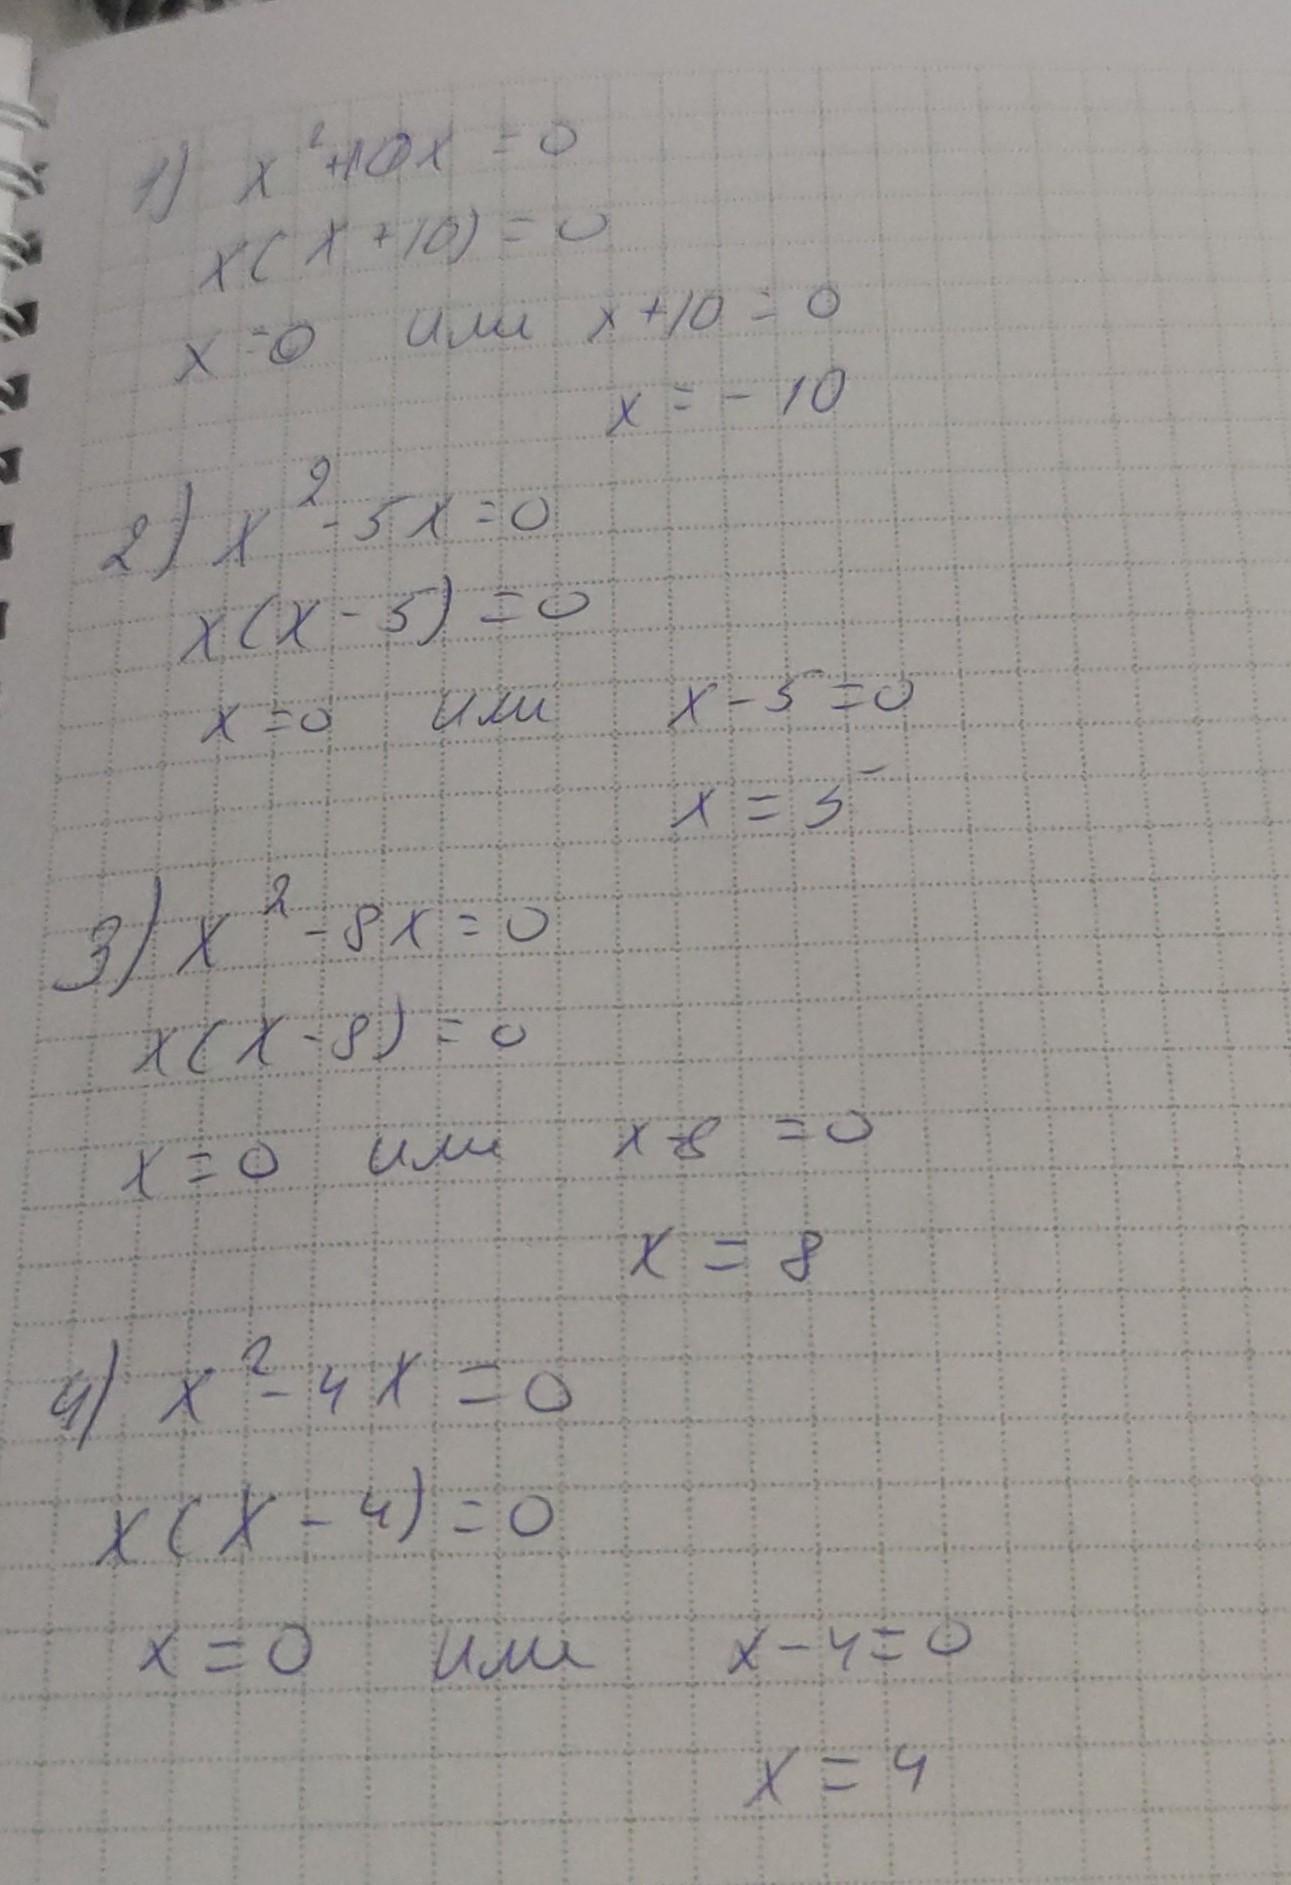 1) x²+10x = 0
x(x+10) = 0
x=0 или x+10 = 0
x = -10
2) x²-5x=0
x(x-5)=0
x=0 или x-5=0
x=5
3) x²-8x=0
x(x-8)=0
x=0 или x-8=0
x = 8
4) x²-4x=0
x(x-4)=0
x=0 или x-4=0
x=4